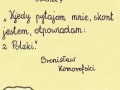 "Kiedy pytają mnie, skąd
jestem, odpowiadam:
z Polski."
Bronisław
Komorofski